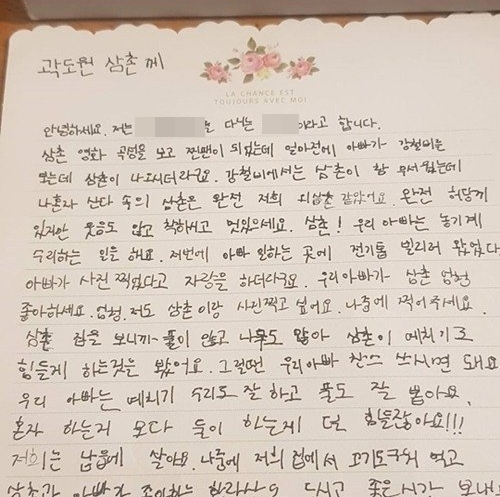 곽도원 삼촌께
LA CHANCE EST
TOUJOURS AVEC MOI
안녕하세요. 저는 을 다니는 이라고 합니다.
삼촌 영화 곡성을 보고 찐팬이 되었는데 얼마전에 아빠가 강철비를
보는데 삼촌이 나오시더라구요. 강철비에서는 삼촌이 참 무서웠는데
나혼자 산다 속의 삼촌은 완전 저희 외삼촌 같았어요. 완전 허당끼
있지만 웃음도 많고 착하시고 멋있으세요. 삼촌! 우리 아빠는 농기계
수리하는 일을 해요. 저번에 아빠 일하는 곳에 전기톱 빌리러 왔었다
아빠가 사진 찍었다고 자랑을 하더라구요. 우리아빠가 삼촌 엄청
좋아하세요. 엄청. 저도 삼촌이랑 사진찍고 싶어요. 나중에 찍어주세요.
삼촌 집을 보니까 풀이 많고 나무도 많아 삼촌이 예치기로
힘들게 하는것을 봤어요. 그럴땐 우리아빠 찬스 쓰시면 돼요
우리 아빠는 예치기 수리도 잘 하고 풀도 잘 뽑아요.
혼자 하는거 보다 둘이 하는게 덜 힘들잖아요!!!
저희는 납읍에 살아요. 나중에 저희 집에서 고기도구워 먹고
삼촌과 아빠가 좋아하는 한라산도 마시고 좋은시간 보내